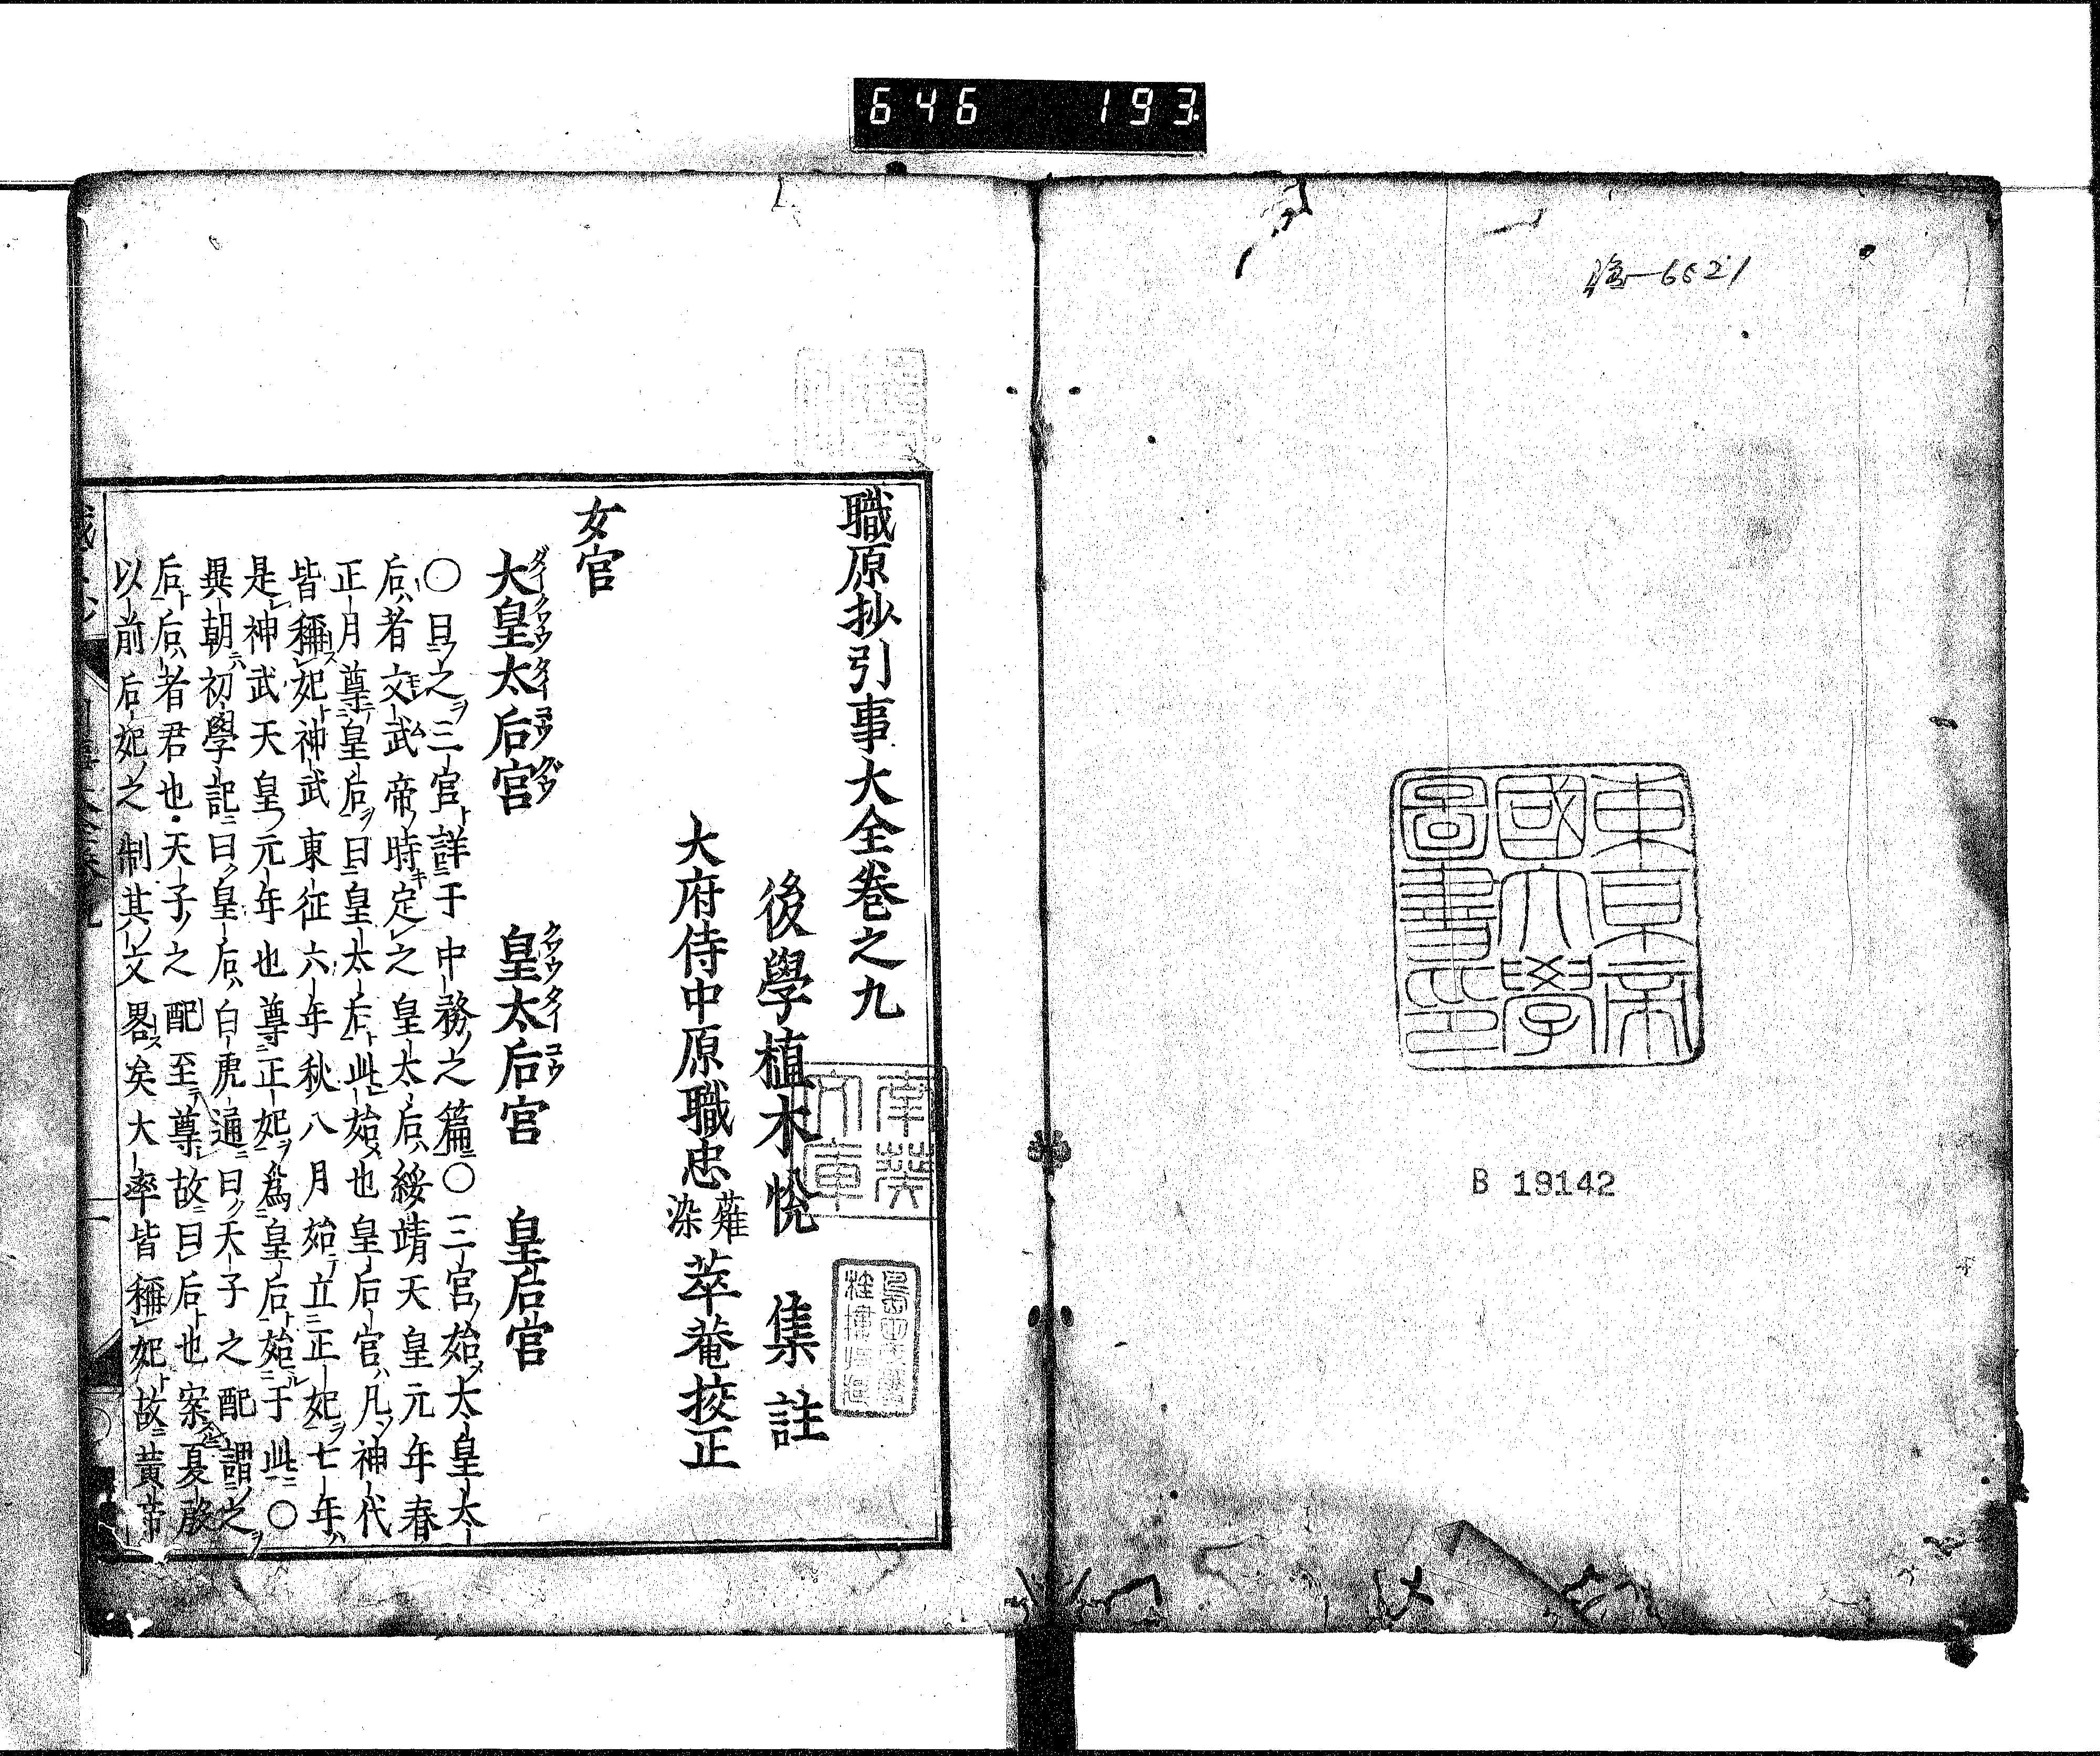 646 193
陰-6521
東京帝
國大學
圖書之印
B 19142
職原抄引事大全巻之九
後學植木悅 集註
大府侍中原職忠 薙染 萃菴挍正
南葵
文庫
女官
大皇太后宮 皇太后宮 皇后宮
ダイクワウタイコウグウ クワウタイコウ
〇曰之三宮詳于中務之篇〇三宮始太皇太
后者文武帝時定之皇太后綏靖天皇元年春
正月尊皇后曰皇太后此始也皇后宮凡神代
皆稱妃神武東征六年秋八月始立正妃七年
是神武天皇元年也尊正妃爲皇后始于此〇
異朝初學記曰皇后白虎通曰天子之配謂之
后后者君也天子之配至尊故曰后也案夏殷
以前后妃之制其文畧矣大率皆稱妃故黃帝